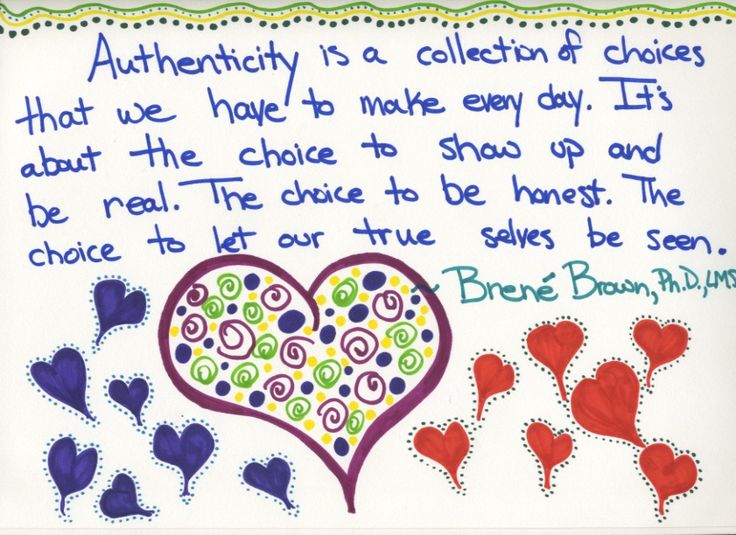 Authenticity is a collection of choices
that we have to make every day. It's
about the choice to show up and
be real. The choice to be honest. The
choice to let our true selves be seen.
~ Brené Brown, Ph.D., LMS